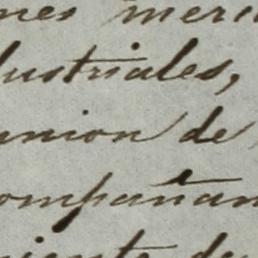 nes meri
dustriales,
union de
ompañan
iento de